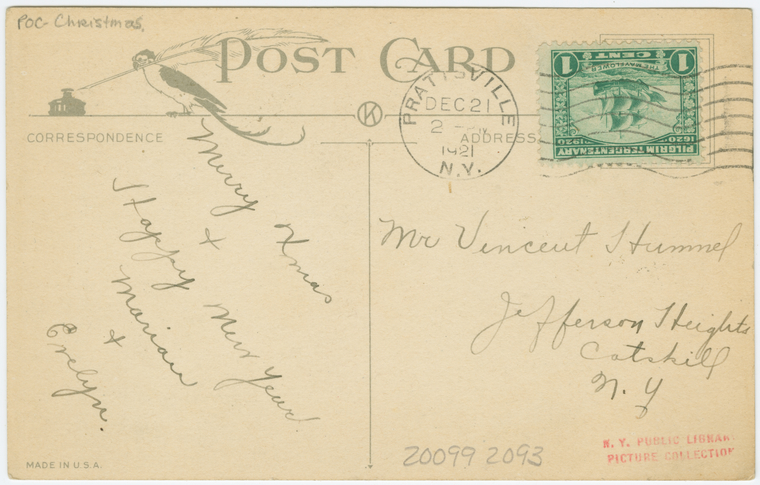 POC- Christmas.
POST CARD
CORRESPONDENCE
ADDRESS
PRATTSVILLE
DEC 21
2
1921
N.Y.
1 CENT 1
THE MAYFLOWER
PILGRIM TERCENTENARY
1620 1920
Merry Xmas
+
Happy New Year
Marian
+
Evelyn.
Mr Vincent Hummel
Jefferson Heights
Catskill
N. Y
MADE IN U.S.A.
20099 2093
N. Y. PUBLIC LIBRARY
PICTURE COLLECTION